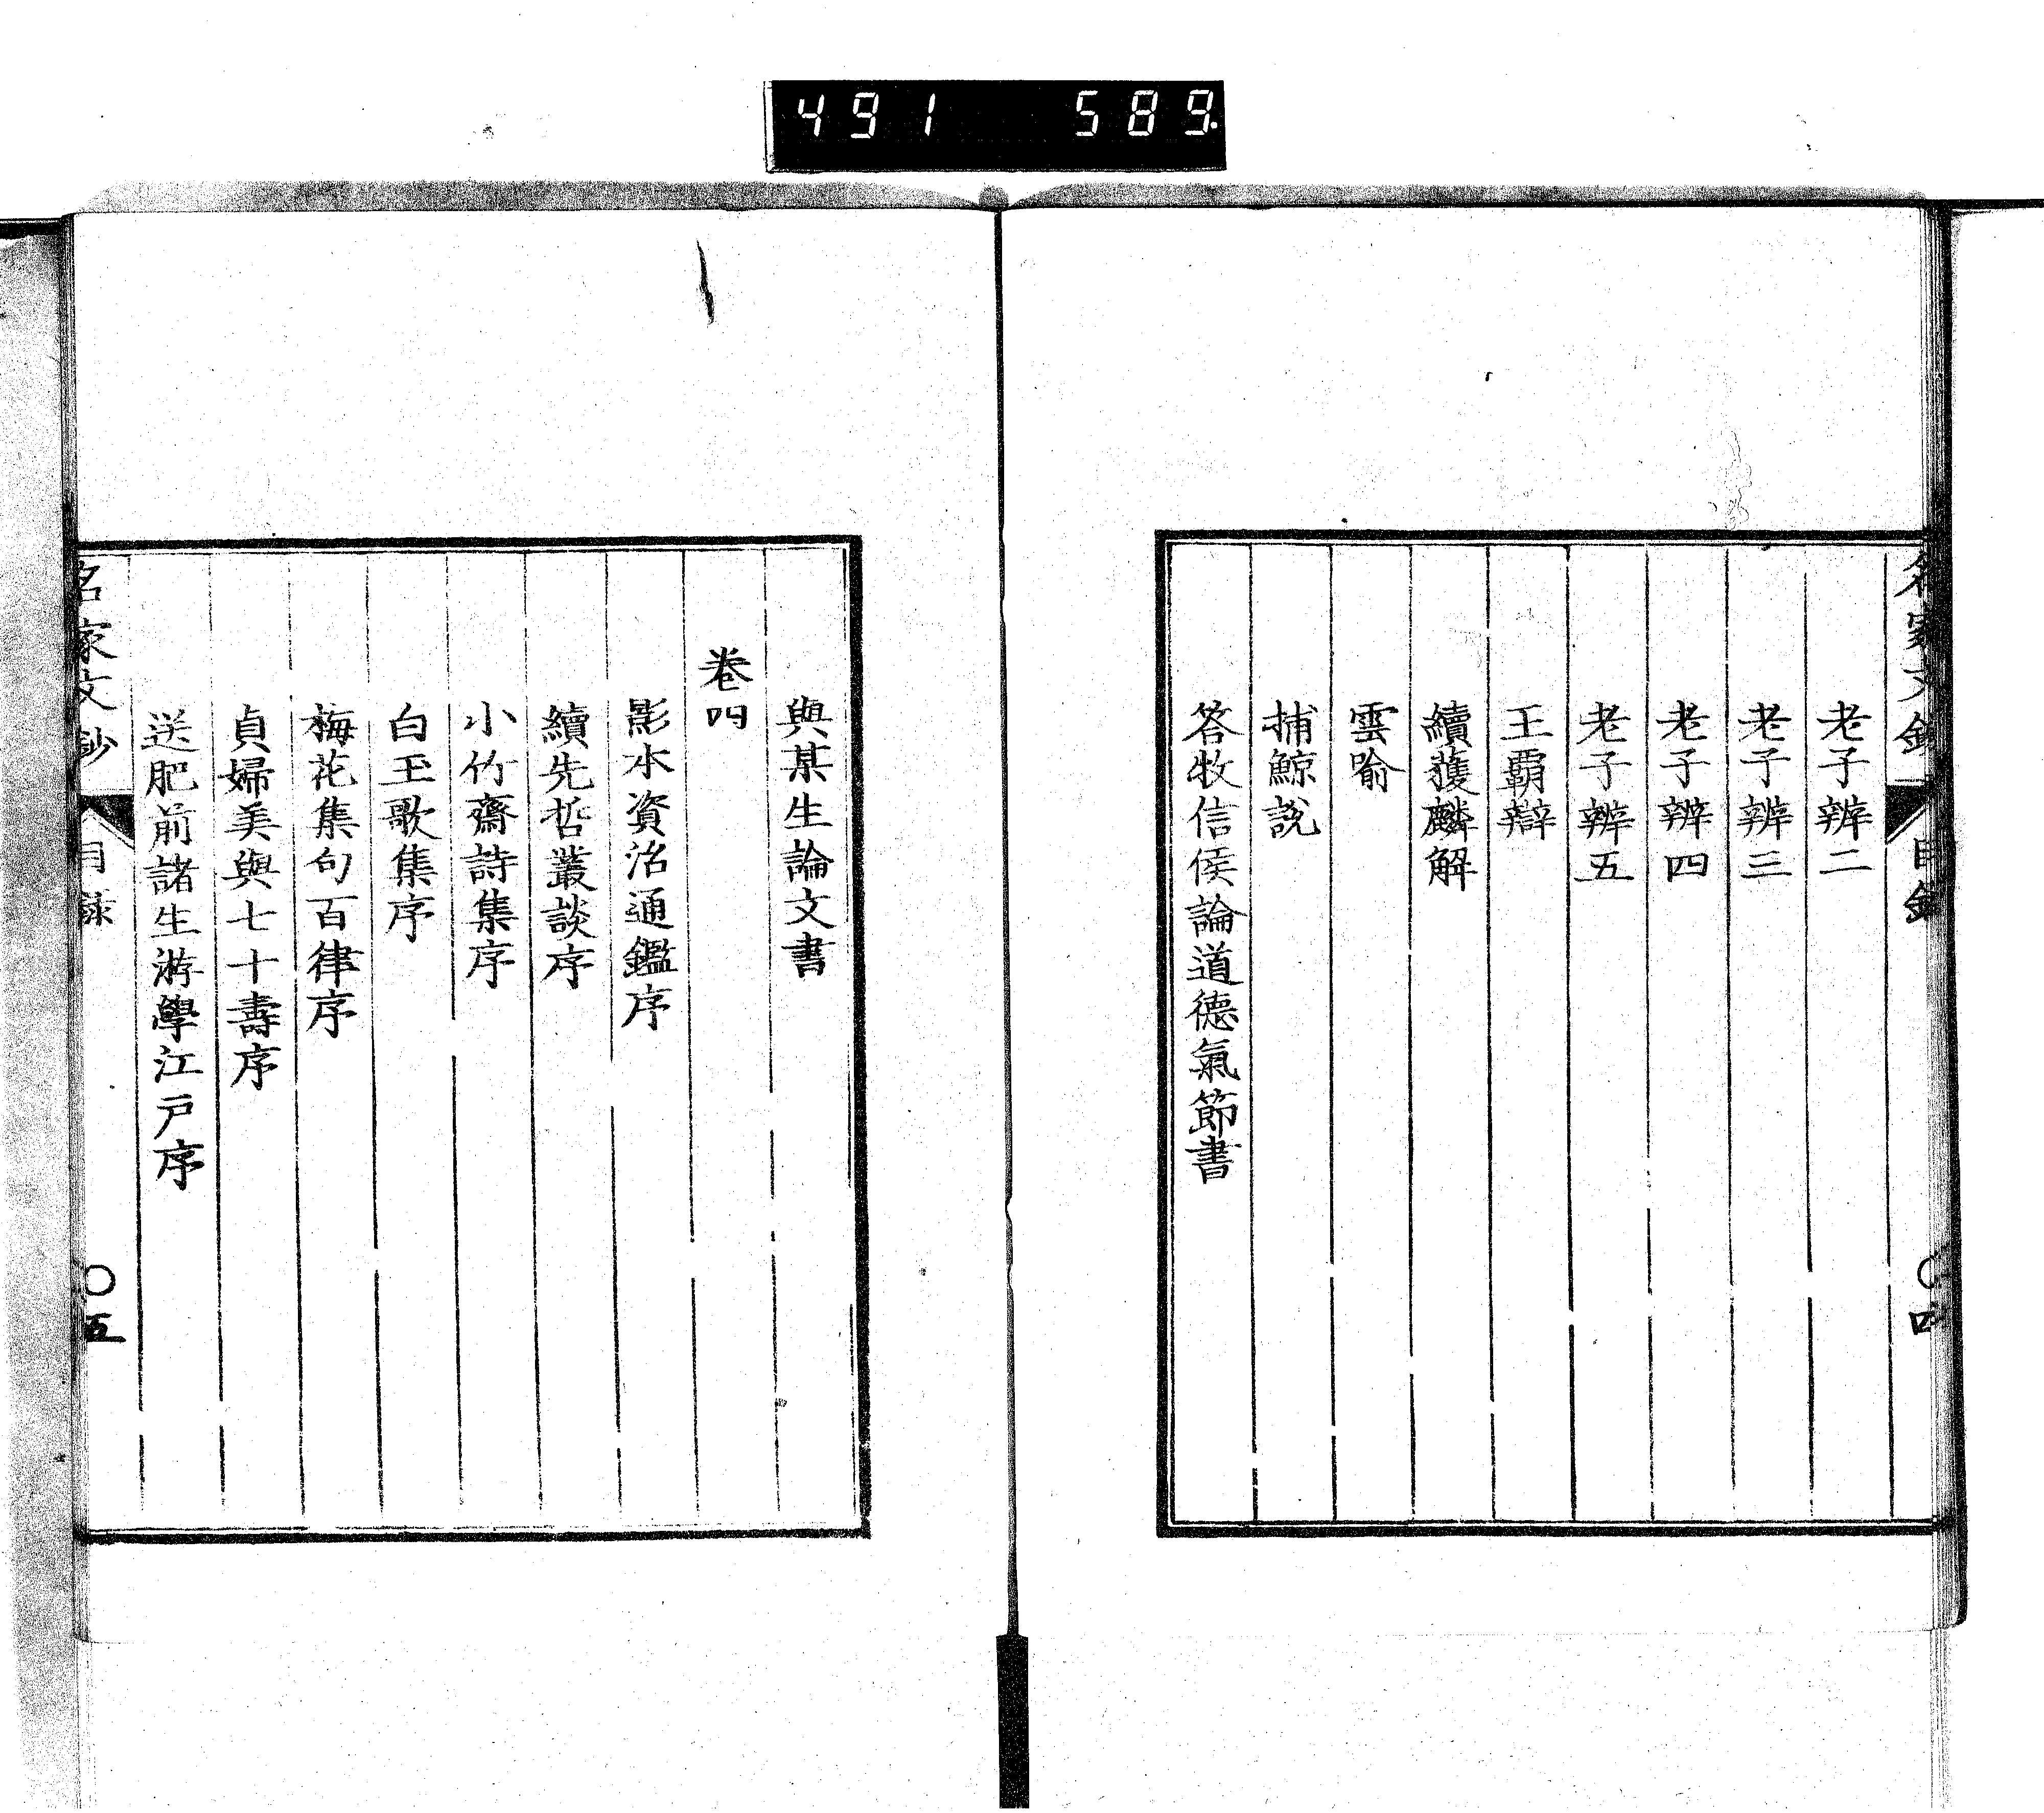 491 589
名家文鈔 目錄 〇四
老子辨二
老子辨三
老子辨四
老子辨五
王霸辯
續獲麟解
雲喻
捕鯨說
答牧信侯論道德氣節書
與某生論文書
卷四
影本資治通鑑序
續先哲叢談序
小竹齋詩集序
白玉歌集序
梅花集句百律序
貞婦美與七十壽序
送肥前諸生游學江戶序
名家文鈔 目錄 〇五